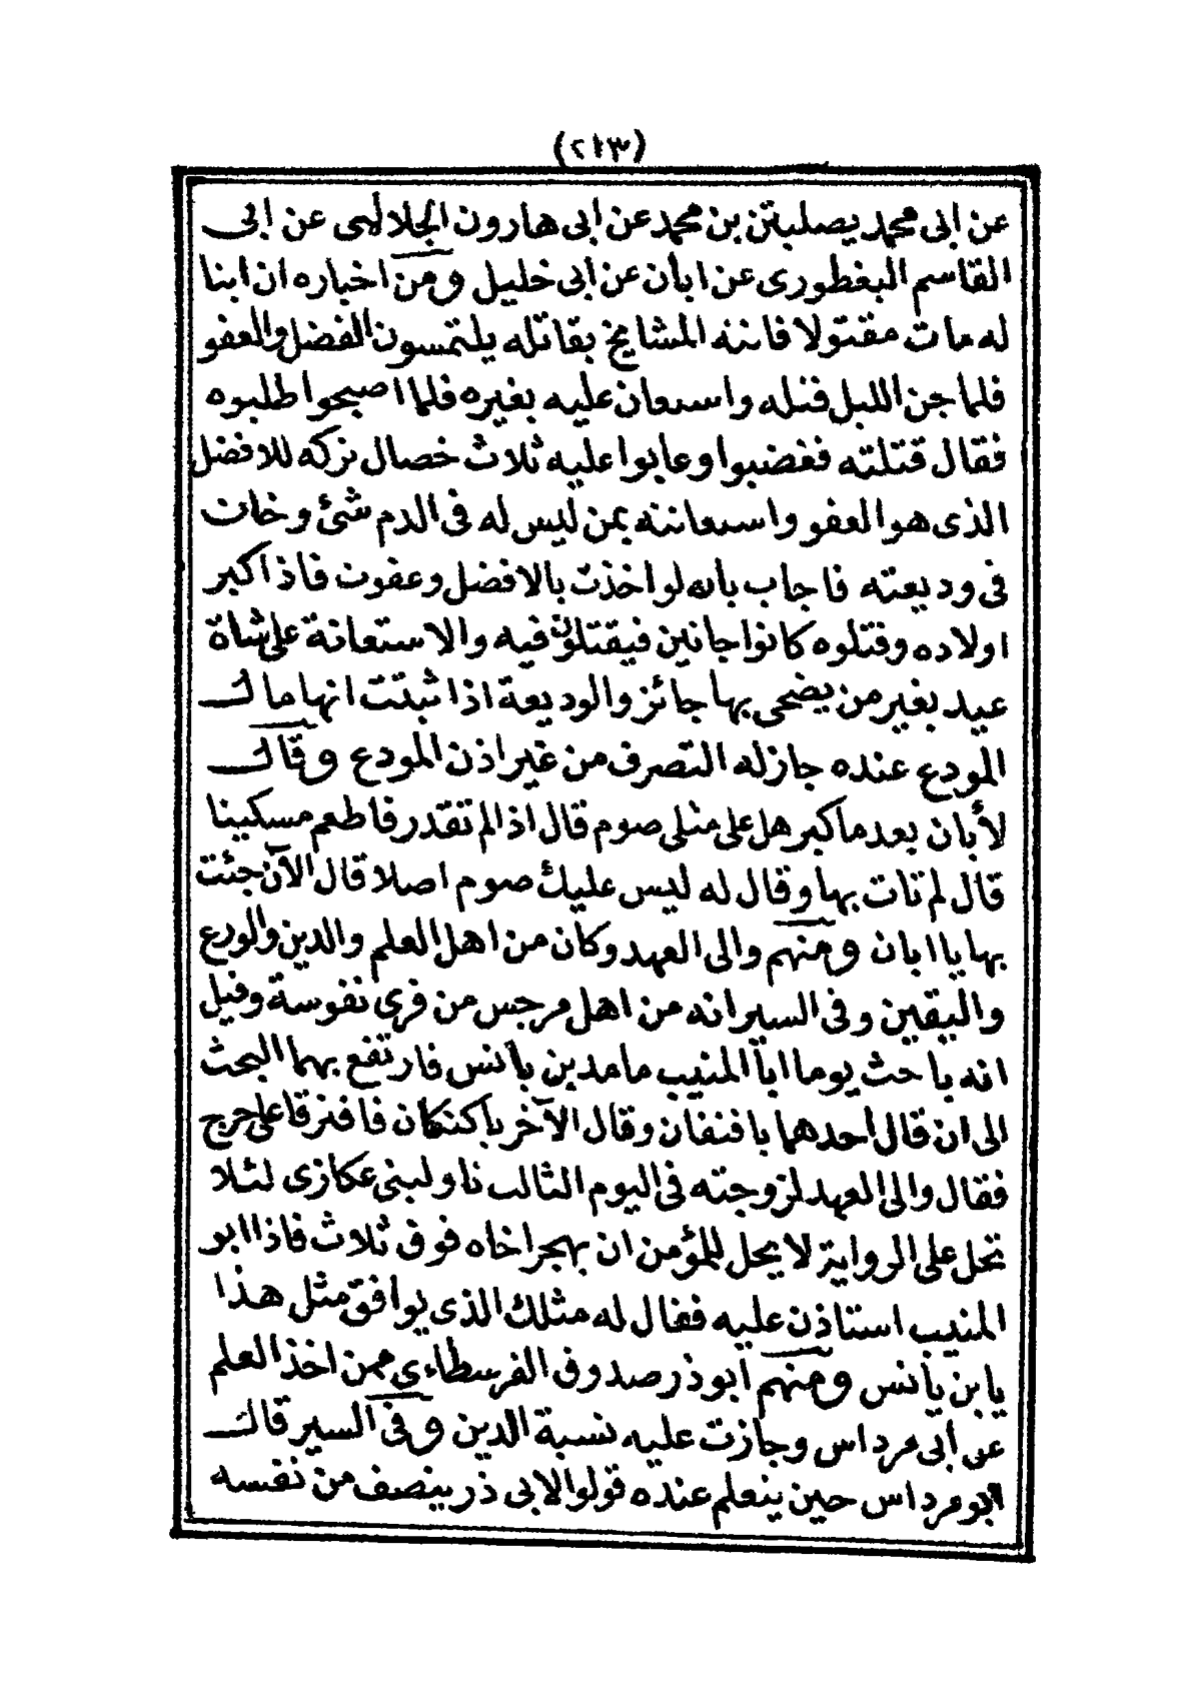 (٢١٣)
عن ابى محمد يصليتن بن محمد عن ابى هارون الجلالمى عن ابى
القاسم البغطورى عن ابان عن ابى خليل ومن اخباره ان ابنا
له مات مقتولا فاتته المشايخ بقاتله يلتمسون الفضل والعفو
فلما جن الليل قتله واستعان عليه بغيره فلما اصبحوا طلبوه
فقال قتلته فغضبوا وعابوا عليه ثلاث خصال تركه للافضل
الذى هو العفو واستعانته بمن ليس له فى الدم شئ وخانت
فى وديعته فاجاب بانه لو اخذت بالافضل وعفوت فاذا كبر
اولاده وقتلوه كانوا جانين فيقتلون فيه والاستعانة على شاة
عيد بغير من يضحى بها جائز والوديعة اذا ثبتت انها مال
المودع عنده جاز له التصرف من غير اذن المودع وقال
لأبان بعد ما كبر هل على مثلى صوم قال اذا لم تقدر فاطعم مسكينا
قال لم تات بها وقال له ليس عليك صوم اصلا قال الآن جئت
بها يا ابان ومنهم والى العهد وكان من اهل العلم والدين والورع
واليقين وفى السير انه من اهل مرجس من قرى نفوسة وقيل
انه باحث يوما ابا المنيب مامد بن يانس فارتفع بهما البحث
الى ان قال أحدهما يا فنفان وقال الآخر يا كنكان فافترقا على حرج
فقال والى العهد لزوجته فى اليوم الثالث ناولينى عكازى لئلا
تحل على الرواية لا يحل للمؤمن ان يهجر اخاه فوق ثلاث فاذا ابو
المنيب استاذن عليه فقال له مثلك الذى يوافق مثل هذا
يا بن يانس ومنهم ابو ذر صدوق الفرسطاءى ممن اخذ العلم
عن أبى مرداس وجازت عليه نسبة الدين وفى السير قال
ابو مرداس حين يتعلم عنده قولوا لابى ذر ينصف من نفسه